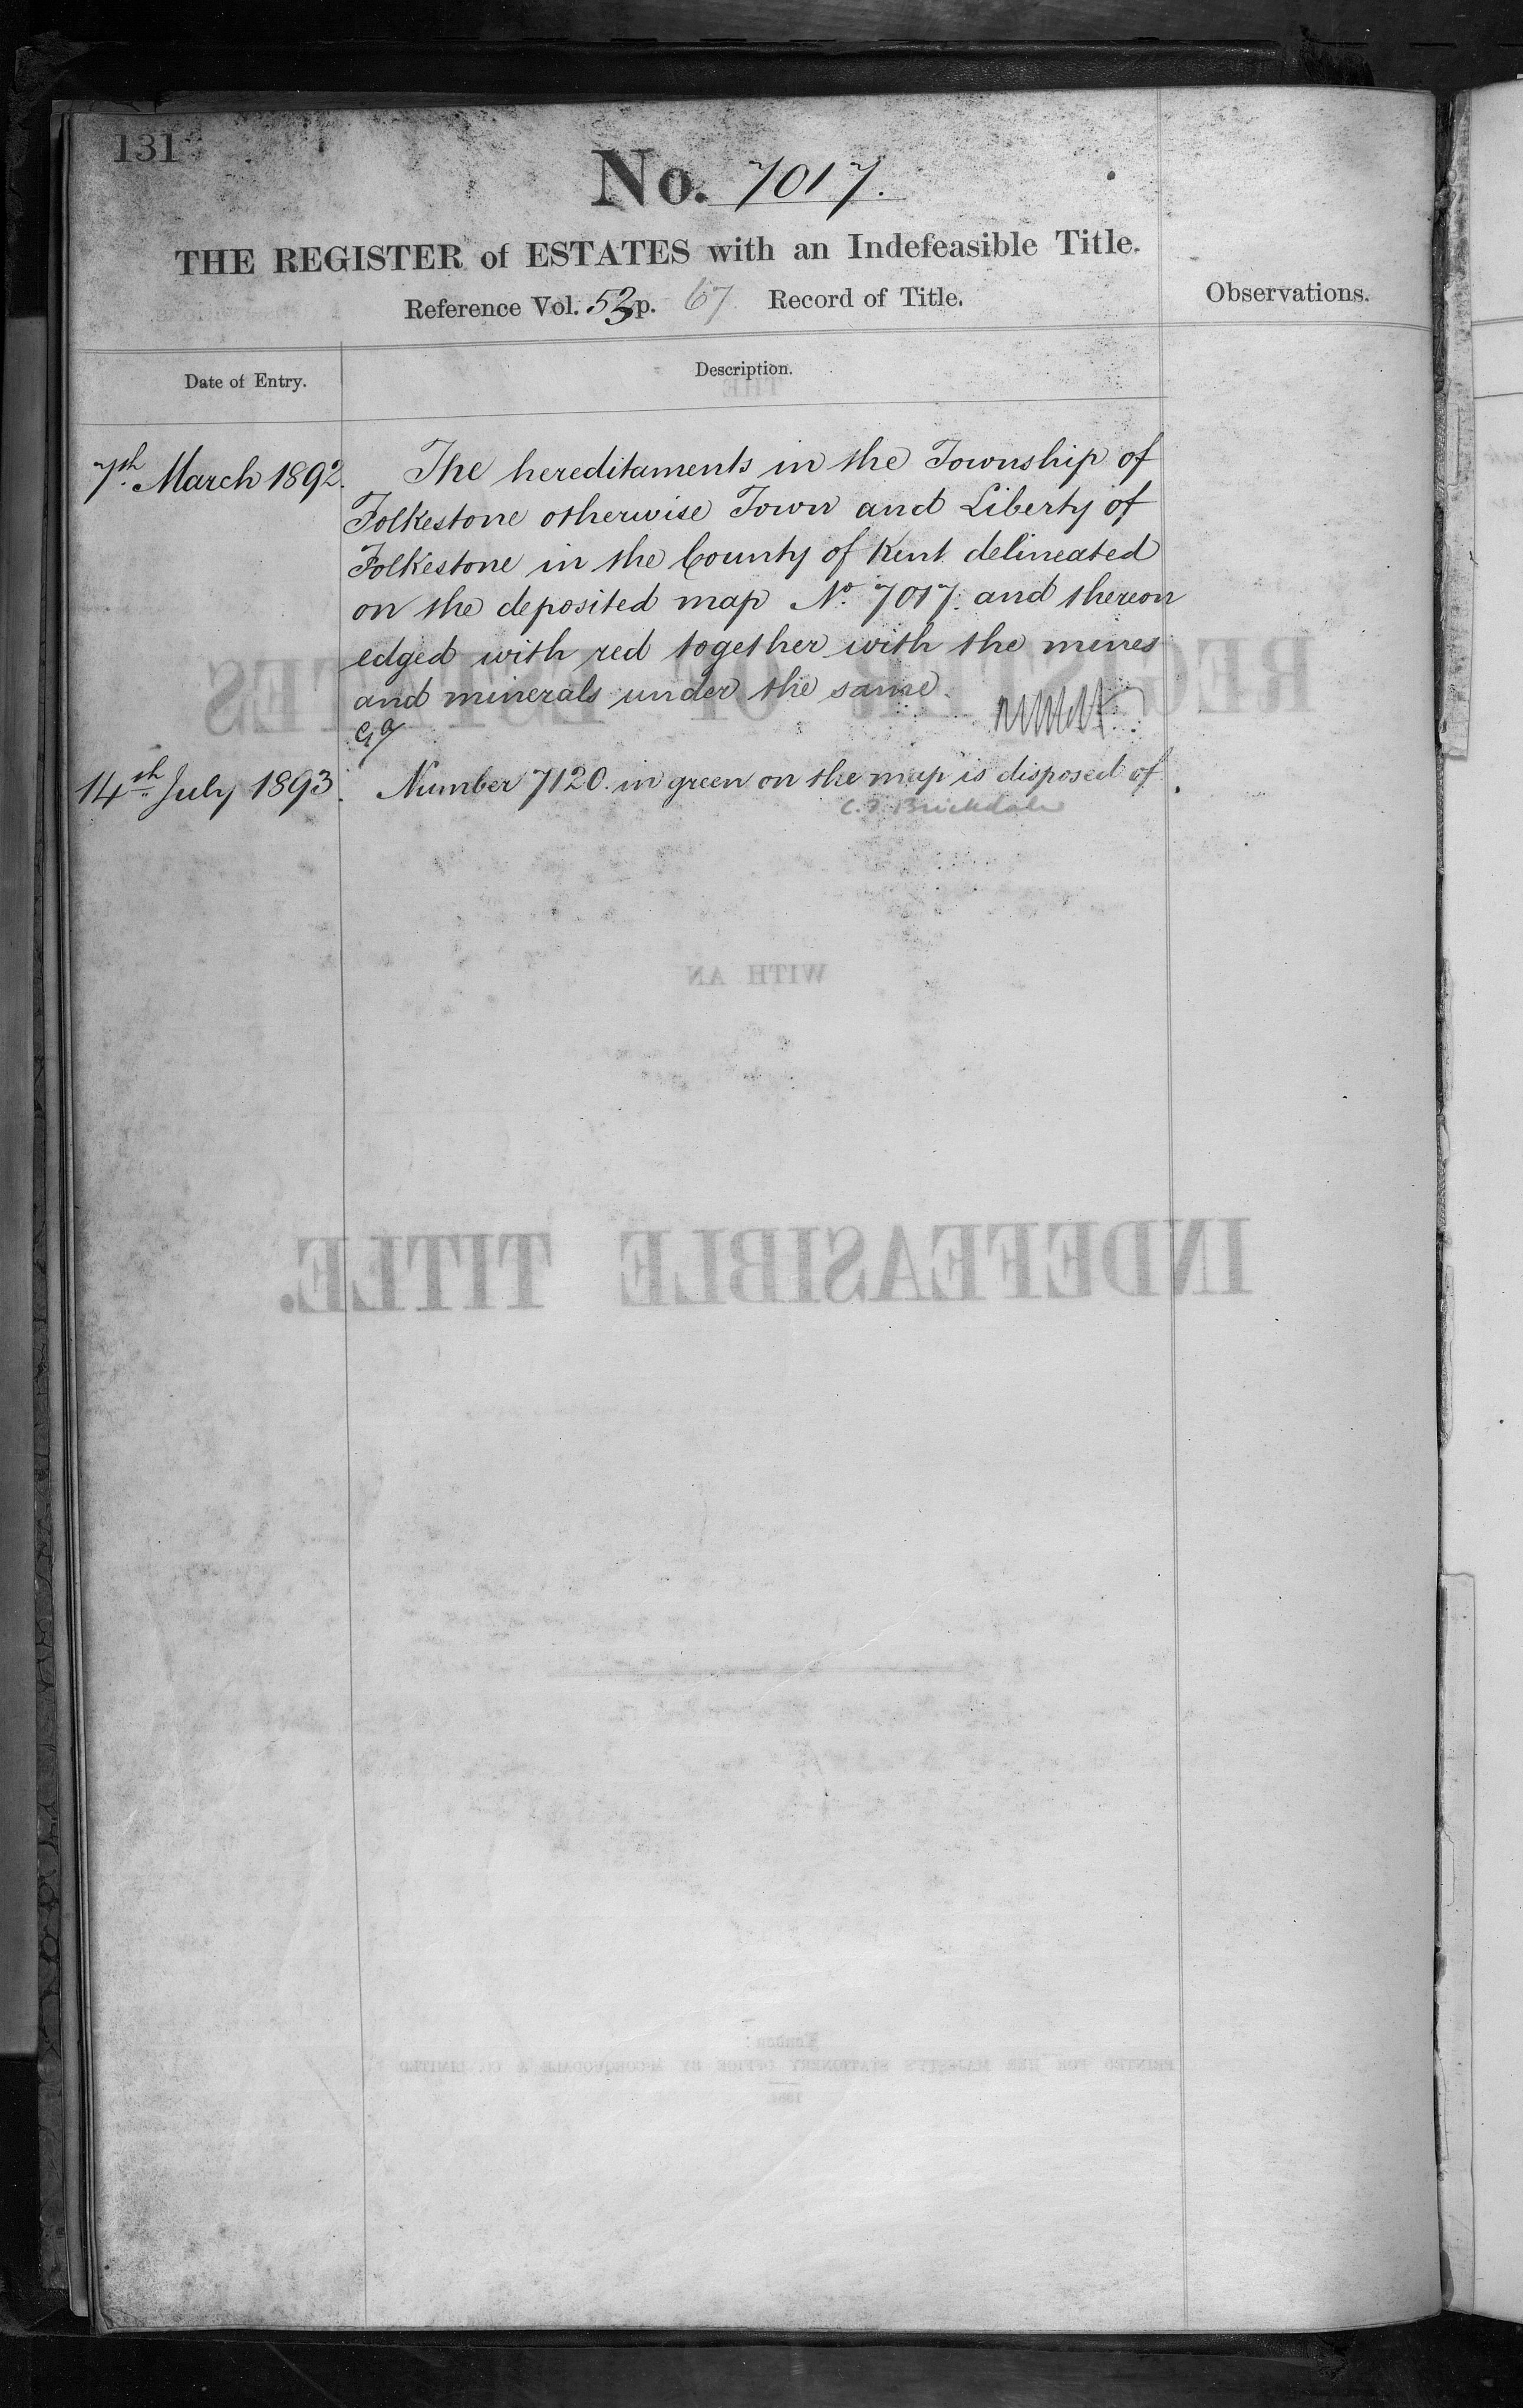 131
No. 7017.
THE REGISTER of ESTATES with an Indefeasible Title.
Reference Vol. 53 p. 67 Record of Title.
Observations.
Date of Entry.
Description.
7th March 1892.
The hereditaments in the Township of
Folkestone otherwise Town and Liberty of
Folkestone in the County of Kent delineated
on the deposited map No. 7017. and thereon
edged with red together with the mines
and minerals under the same.
14th July 1893.
Number 7120. in green on the map is disposed of.
C. F. Brickdale
THE
REGISTER OF ESTATES
WITH AN
INDEFEASIBLE TITLE.
London:
PRINTED FOR HER MAJESTY'S STATIONERY OFFICE BY MCCORQUODALE & CO. LIMITED